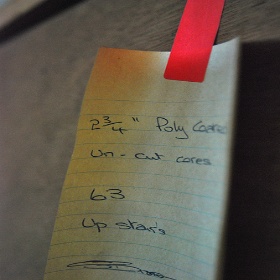 2 3/4" Poly Cores
Un-cut cores
63
Up stairs